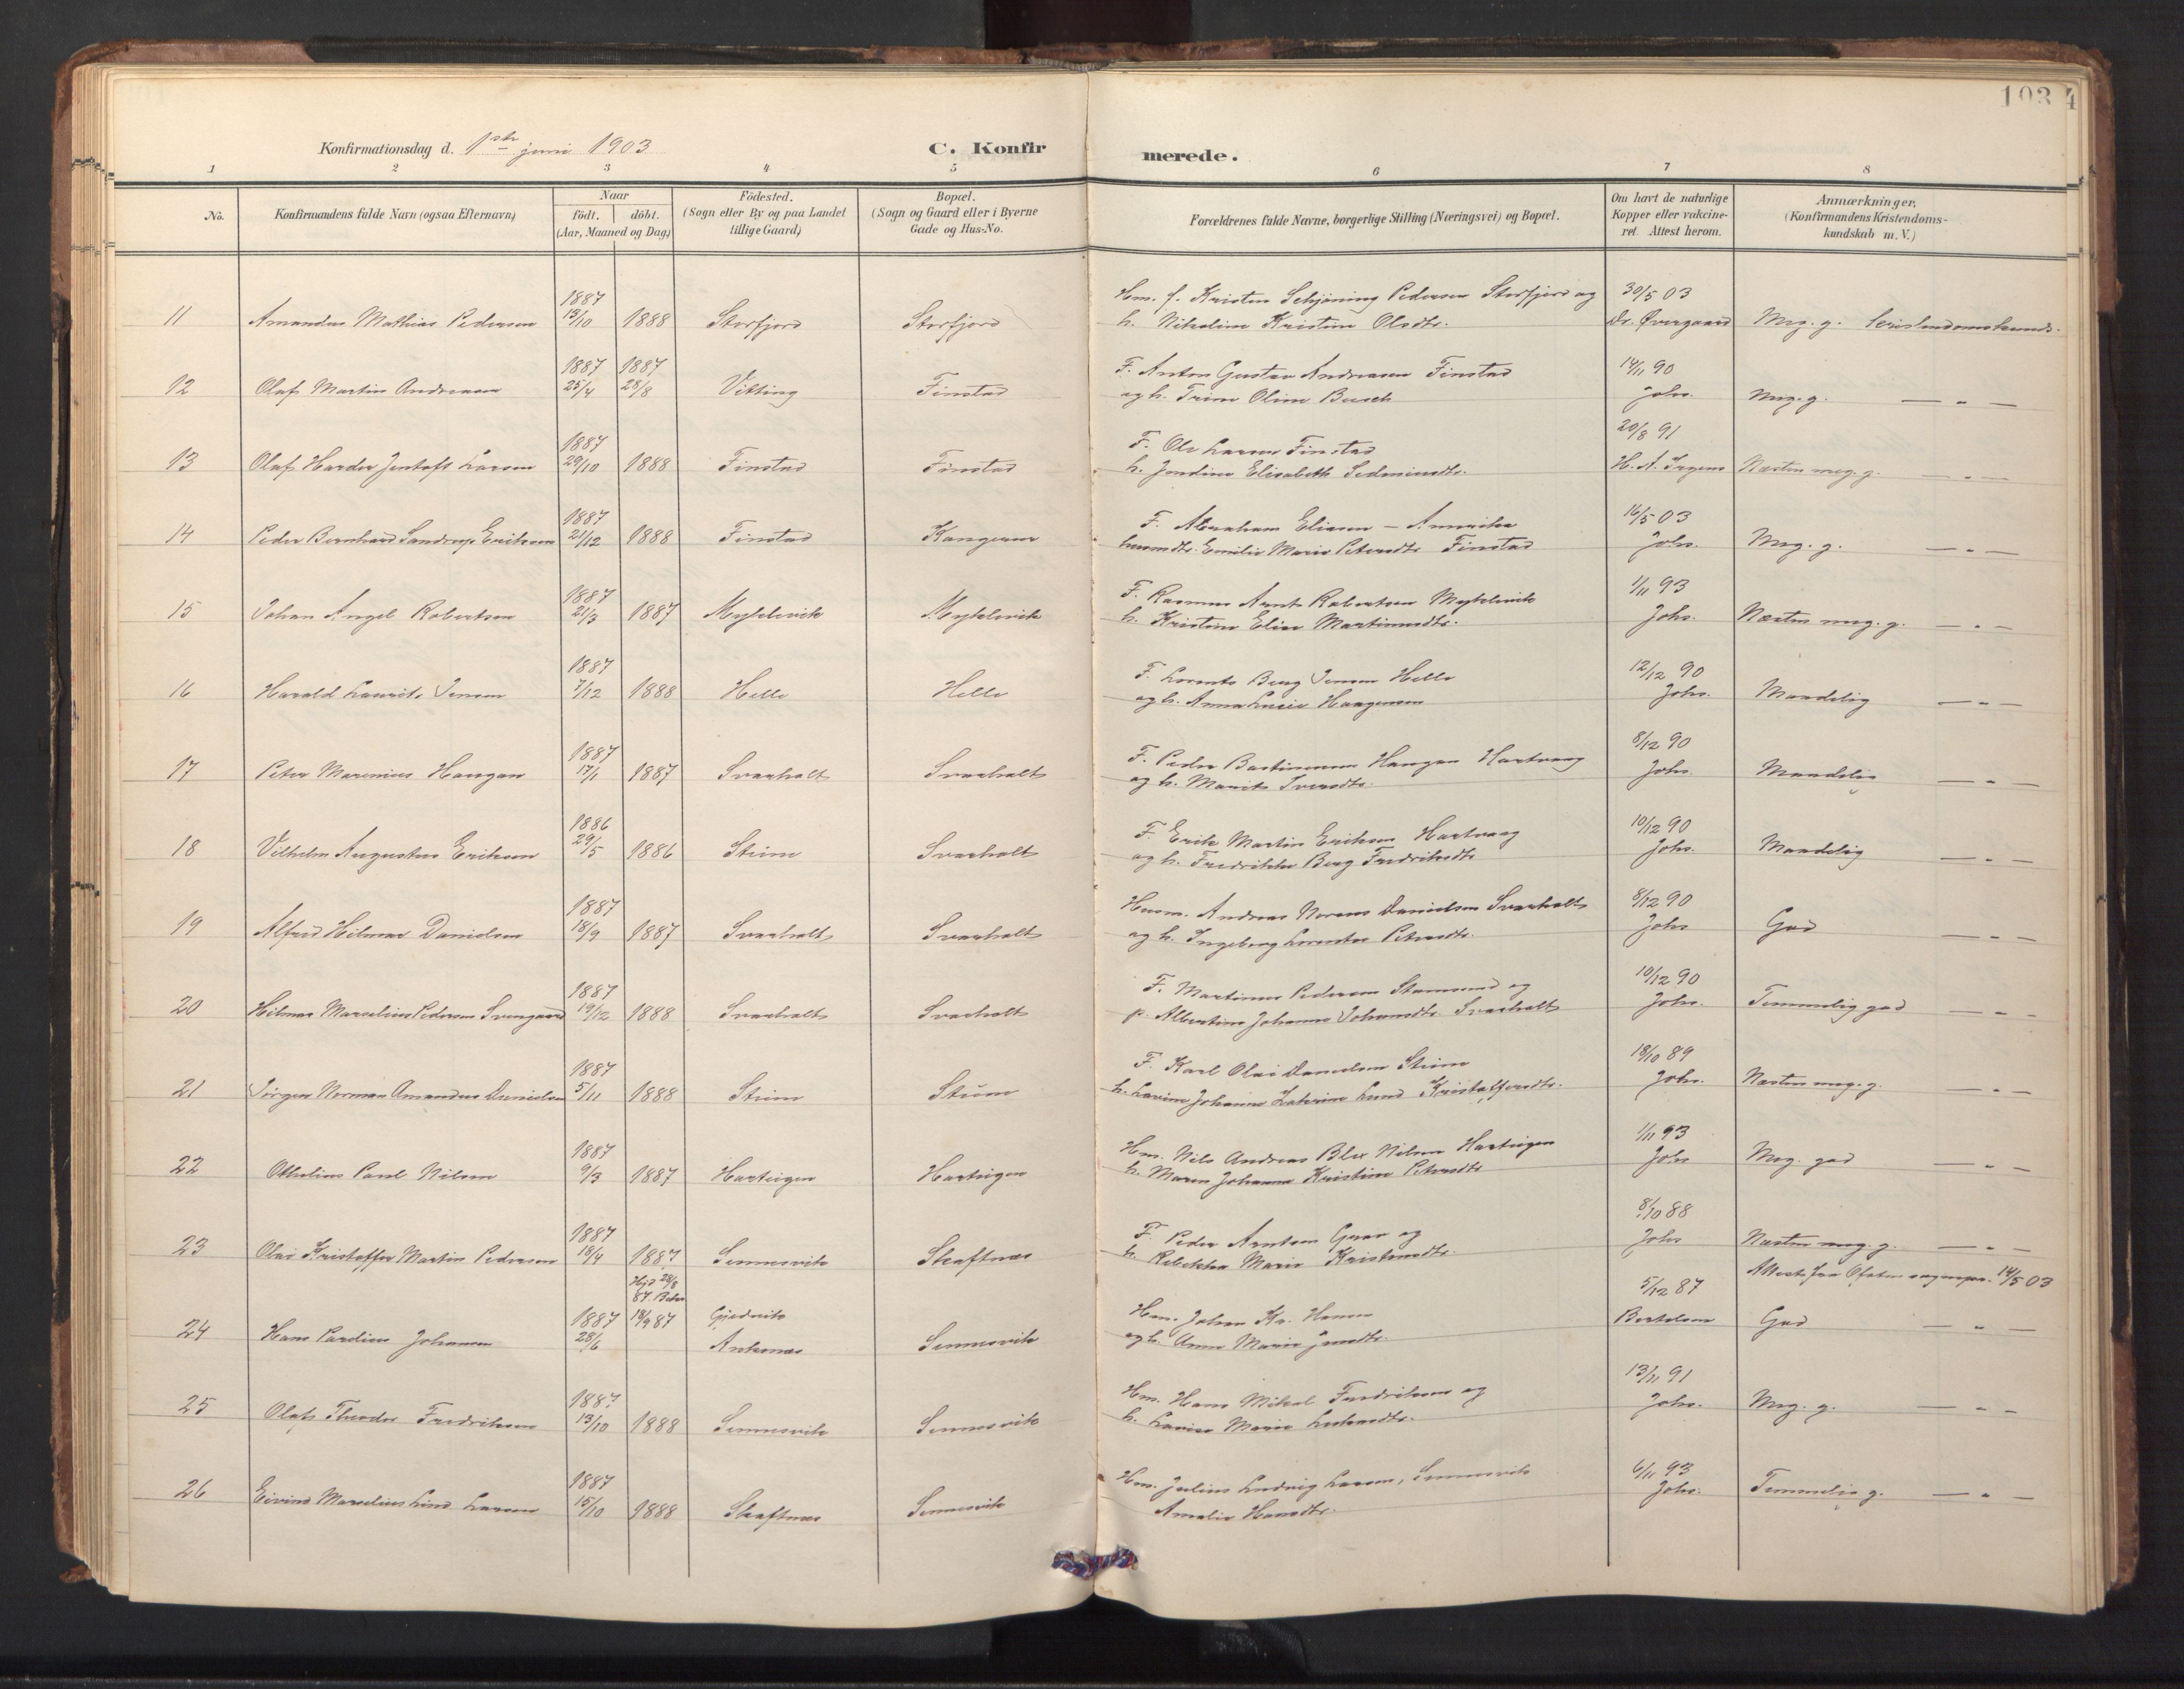 103
4
Konfirmationsdag d. 1ste juni 1903
C. Konfir
merede.
1 2 3 4 5 6 7 8
No.
Konfirmandens fulde Navn (ogsaa Efternavn)
Naar
födt. döbt.
(Aar, Maaned og Dag)
Födested.
(Sogn eller By og paa Landet
tillige Gaard)
Bopæl.
(Sogn og Gaard eller i Byerne
Gade og Hus-No.
Forældrenes fulde Navne, borgerlige Stilling (Næringsvei) og Bopæl.
Om havt de naturlige
Kopper eller vakcine-
ret. Attest herom.
Anmærkninger,
(Konfirmandens Kristendoms-
kundskab m. V.)
1887 Hm. f. Kristen Schjöning Pedersen Storfjord og 30/5 03
11 Amandus Mathias Pedersen 13/10 1888 Storfjord Storfjord h. Nikoline Kristine Olsdtr. Dr. Övergaard Meg. g. Kristendomskunds.
1887 1887 F. Anton Gustav Andreasen Finstad 14/11 90
12 Olaf Martin Andreasen 25/4 28/8 Vikting Finstad og h. Trine Oline Busch Johs. Meg. g. — " —
1887 F. Ole Larsen Finstad 20/8 91
13 Olaf Harder Larsen 29/10 1888 Finstad Finstad h. Jendine Elisabeth H. A. Irgens Næsten meg. g. — " —
1887 F. Abraham Eliasen – Amerika 16/5 03
14 Peder Bernhard Eriksen 21/12 1888 Finstad Emilie Marie Petersdtr Finstad Johs. Meg. g. — " —
1887 F. Rasmus Arnt Robertsen Myklevik 1/11 93
15 Johan Angel Robertsen 21/3 1887 Myklevik Myklevik h. Kristine Elise Martinusdtr. Johs. Næsten meg. g. — " —
1887 F. Lorents Berg Jensen Helle 12/12 90
16 Harald Laurits Jensen 7/12 1888 Helle Helle og h. Anna Lucie Haagensen Johs. Maadelig — " —
1887 F. Peder Bastiansen Haugan Hartvaag 8/12 90
17 Peter Marenius Haugan 17/1 1887 Svarholt Svarholt og h. Marit Iversdtr. Johs. Maadelig — " —
1886 F. Erik Martin Eriksen Hartvaag 10/12 90
18 Vilhelm Augustus Eriksen 29/5 1886 Stüne Svarholt og h. Fredrikke Berg Fredriksdtr Johs. Maadelig — " —
1887 Husm. Andreas Danielsen Svarholt 8/12 90
19 Alfred Hilmar Danielsen 18/9 1887 Svarholt Svarholt og h. Ingeborg Petersdtr. Johs God — " —
1887 F. Martinus Pedersen Stamsund og 10/12 90
20 Hilmar Marselius Pedersen Svengaard 19/12 1888 Svarholt Svarholt p. Albertine Johanne Johansdtr. Svarholt Johs. Temmelig god — " —
1887 F. Karl Olai Danielsen Stüne 18/10 89
21 Jörgen Norman Amandus Danielsen 5/11 1888 Stüne Stüne h. Lavine Johanne Katrine Lund Kristoffersdtr. Johs. Næsten meg. g. — " —
1887 Hm. Nils Andreas Blix Nilsen Hartvigen 1/11 93
22 Othelius Paul Nilsen 9/3 1887 Hartvigen Hartvigen h. Maren Johanna Kristine Petersdtr Johs Meg. god — " —
1887 F. Peder Arntsen og 8/10 88
23 Olai Kristoffer Martin Pedersen 18/4 1887 Sennesvik Skaftnes h. Rebekka Marie Kristensdtr. Johs Næsten meg. g. — " —
Hjd 28/8
87.
Attest fra Ofoten sognepr. 14/5 03
1887 18/9 87 Gjedvik Hm. Johan Kr. Hansen 5/12 87
24 Hans Johansen 28/6 Ankenes Sennesvik og h. Anne Marie Bertelsen God — " —
1887 Hm. Hans Mikal Fredriksen og 13/11 91
25 Olaf Theodor Fredriksen 13/10 1888 Sennesvik Sennesvik h. Marie Johs. Meg. g. — " —
1887 Hm. Julius Ludvig Larsen, Sennesvik 6/11 93
26 Eivind Marselius Lind Larsen 15/10 1888 Skaftnes Sennesvik Amalie Hansdtr. Johs. Temmelig g. — " —